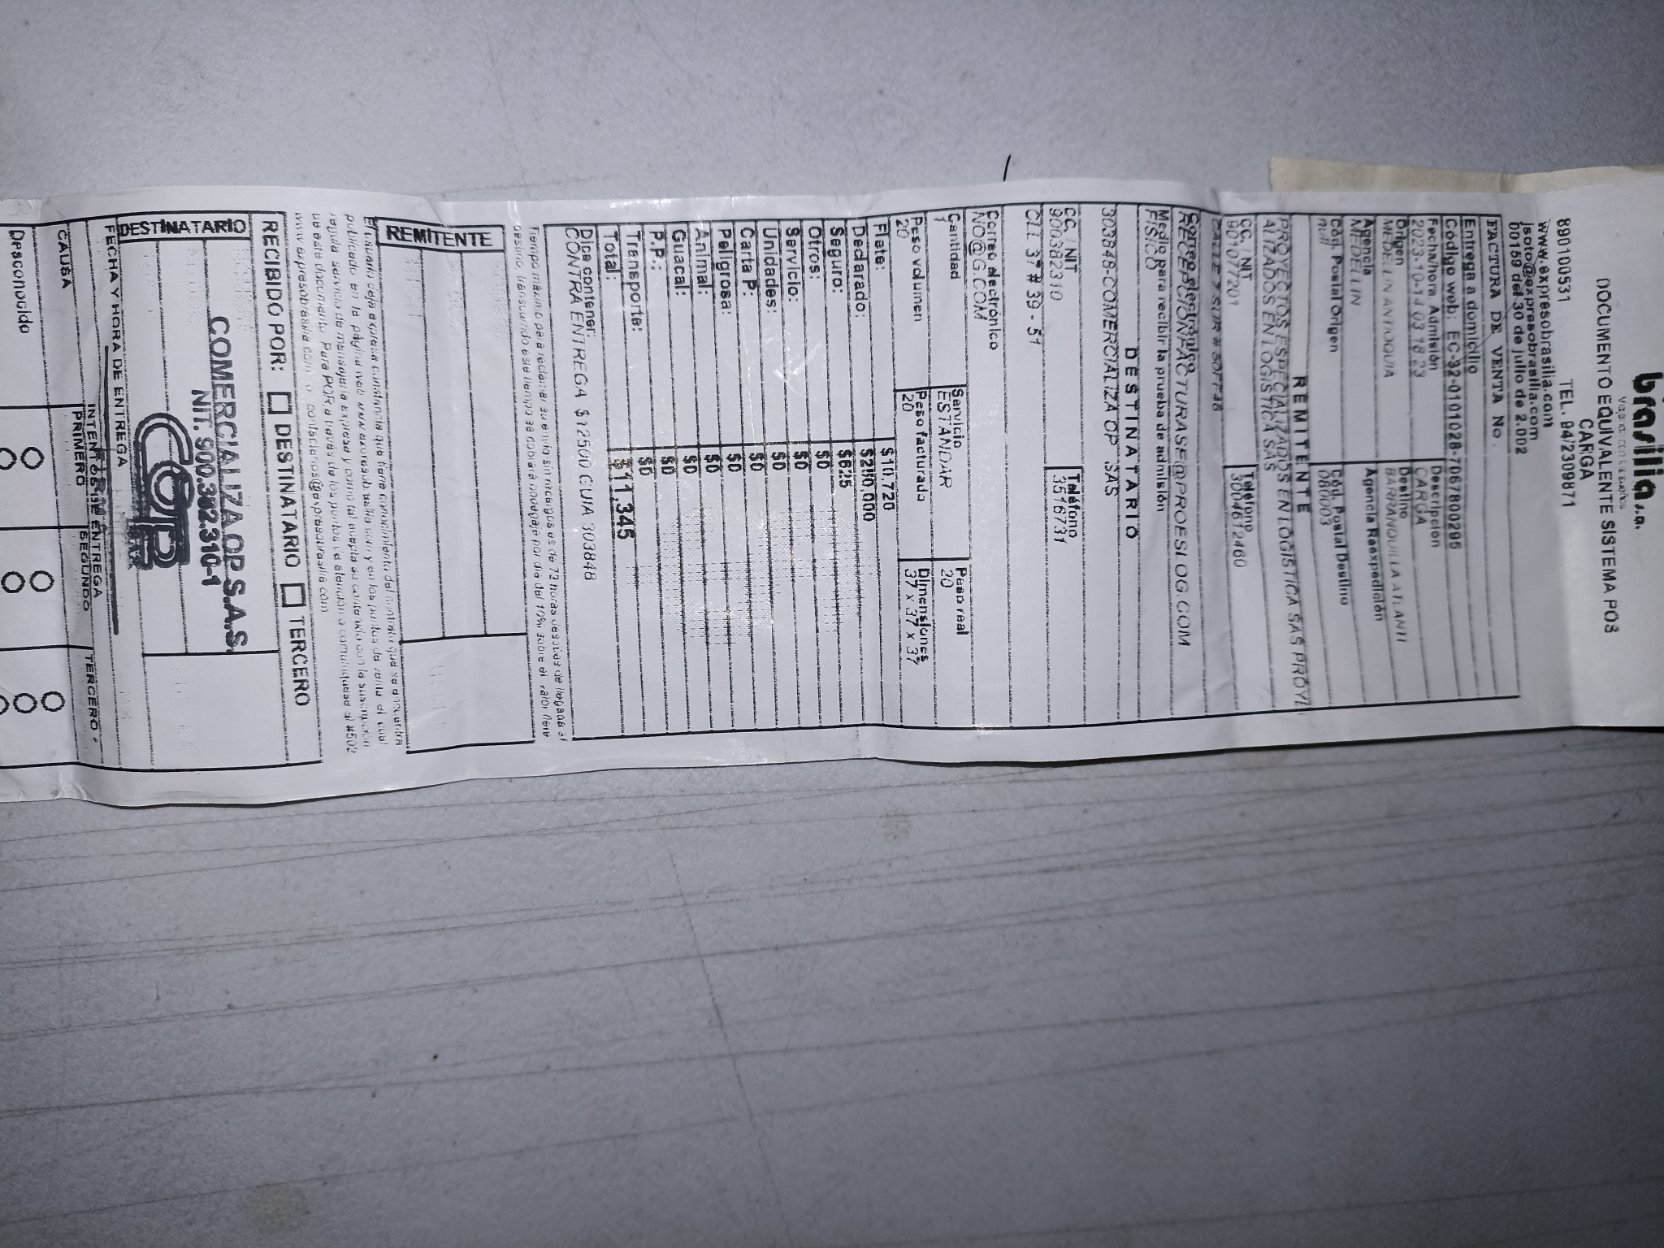 brasilia s.a.
DOCUMENTO EQUIVALENTE SISTEMA POS
CARGA
890100531 TEL. 94/2309871
www.expresobrasilia.com
jsoto@expresobrasilia.com
00159 del 30 de julio de 2.002
FACTURA DE VENTA No.
Entrega a domicilio
Codigo web: EC-32-0101028-7067800295
Fecha/hora Admisión Descripción
2023-10-14 03 18 23 CARGA
Origen Destino
MEDELLIN ANTIOQUIA BARRANQUILLA ATLANTI
Agencia Agencia Reexpedición
MEDELLIN
Cod. Postal Origen Cód. Postal Destino
null 080003
REMITENTE
PROYECTOS ESPECIALIZADOS EN LOGISTICA SAS PROYE
ALIZADOS EN LOGISTICA SAS
CC. / NIT Teléfono
901077201 3004612460
CALLE 7 SUR #
Correo electrónico
RECEPCIONFACTURASE@PROESLOG.COM
Medio para recibir la prueba de admisión
FISICO
DESTINATARIO
303848-COMERCIALIZA OP SAS
CC. / NIT Teléfono
900382310 3516731
CLL 37 # 39 - 51
Correo electrónico
NO@G.COM
Cantidad Servicio Peso real
1 ESTANDAR 20
Peso volumen Peso facturado Dimensiones
20 20 37 x 37 x 37
Flete: $10.720
Declarado: $250.000
Seguro: $625
Otros: $0
Servicio: $0
Unidades: $0
Carta P: $0
Peligrosa: $0
Animal: $0
Guacal: $0
P.P.: $0
Transporte: $0
Total: $11.345
Dice contener:
CONTRA ENTREGA $ 12500 GUIA 303848
Tiempo máximo para reclamar su envío sin recargos es de 72 horas después de llegada al
destino, transcurrido este tiempo se cobrará bodegaje por día del 10% sobre el valor flete
REMITENTE
El usuario deja expresa constancia que tiene conocimiento del contrato que se encuentra
publicado en la página web www.expresobrasilia.com y en los puntos de venta el cual
regula servicio de mensajería expresa y como tal acepta su contenido con la suscripción
de este documento. Para PQR a través de los puntos de atención o comuníquese al #502
www.expresobrasilia.com o contactenos@expresobrasilia.com
RECIBIDO POR: DESTINATARIO TERCERO
DESTINATARIO
COMERCIALIZA OP S.A.S
NIT. 900.382.310-1
COP
FECHA Y HORA DE ENTREGA
INTENTOS DE ENTREGA
CAUSA PRIMERO SEGUNDO TERCERO
Desconocido